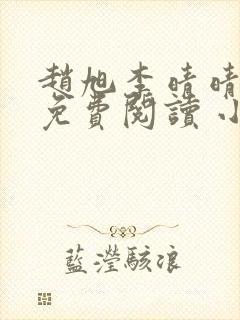 趙旭李晴晴
免費閱讀小
藍瀅駭浪